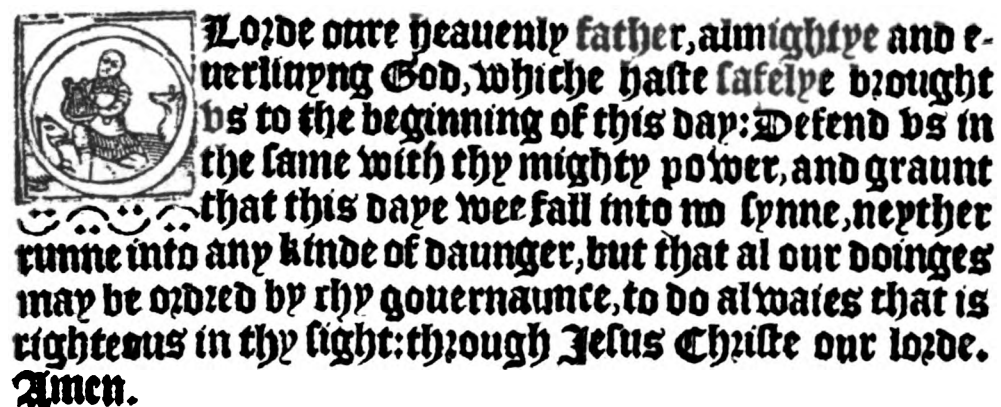 O Lorde oure heauenly father, almightye and e-
uerliuyng God, whiche haste safelye brought
vs to the beginning of this day: Defend vs in
the same with thy mighty power, and graunt
that this daye wee fall into no synne, neyther
runne into any kinde of daunger, but that al our doinges
may be ordred by thy gouernaunce, to do alwaies that is
righteous in thy sight: through Jesus Christe our lorde.
Amen.